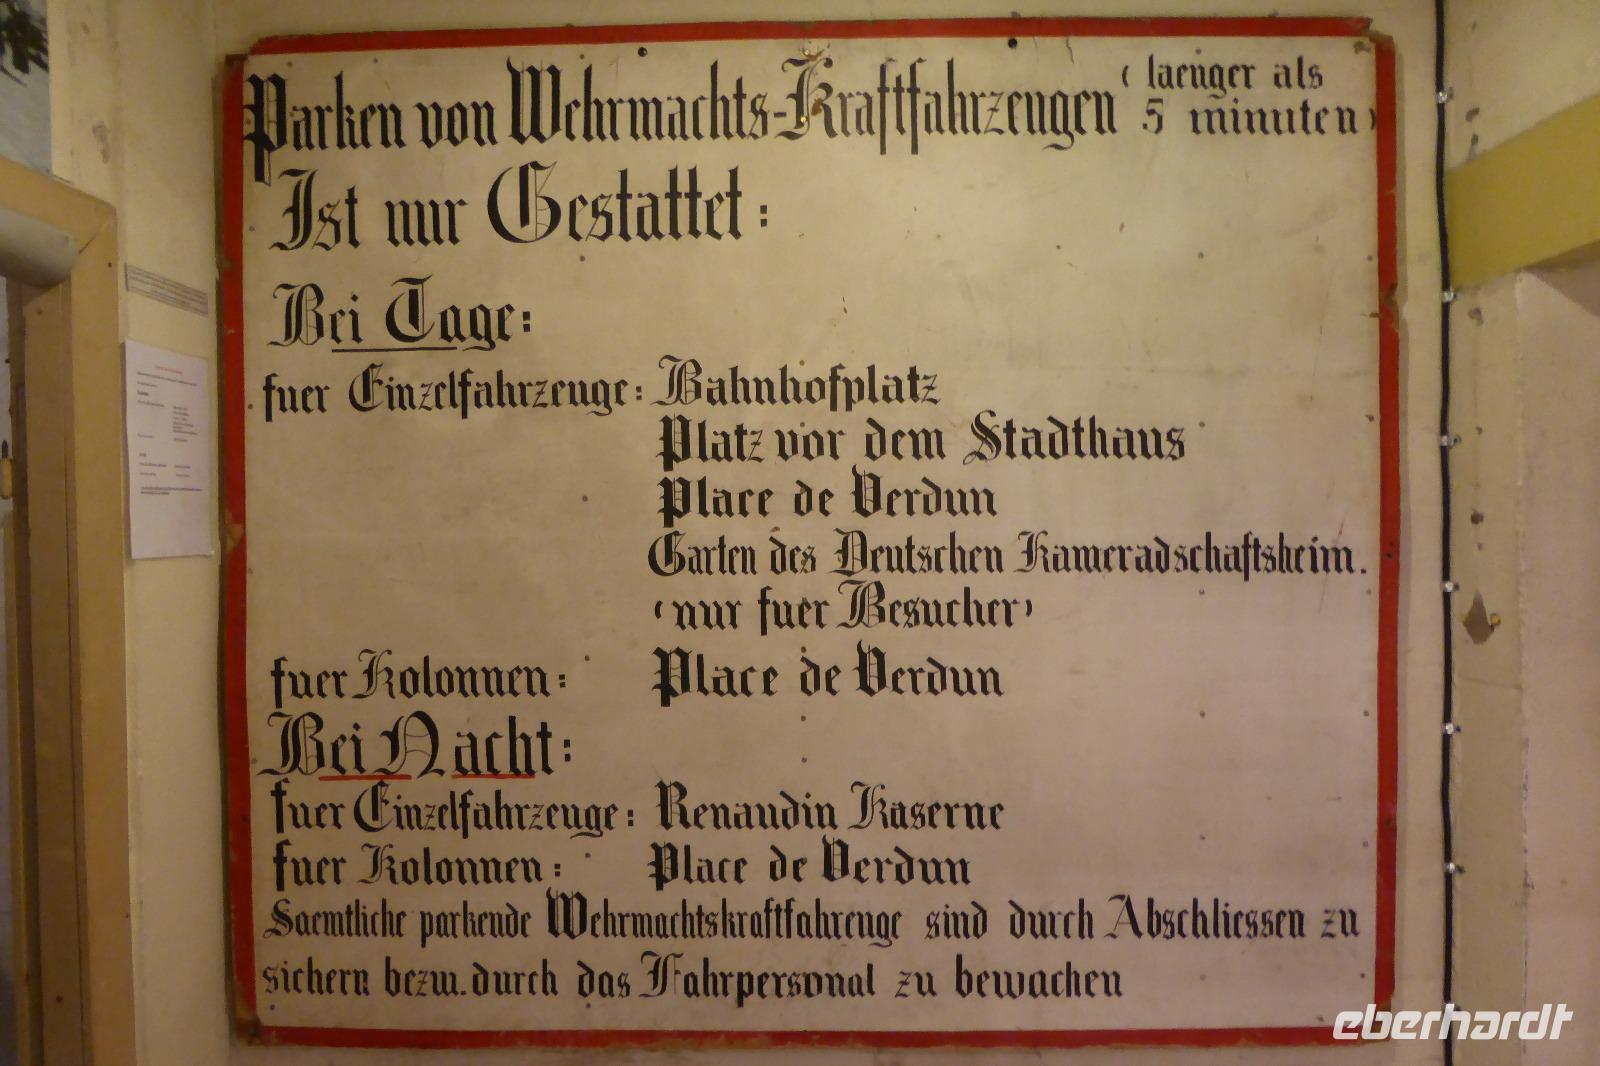 Parken von Wehrmachts-Kraftfahrzeugen (laenger als
5 minuten)
Ist nur Gestattet:
Bei Tage:
fuer Einzelfahrzeuge: Bahnhofplatz
Platz vor dem Stadthaus
Place de Verdun
Garten des Deutschen Kameradschaftsheim.
(nur fuer Besucher)
fuer Kolonnen: Place de Verdun
Bei Nacht:
fuer Einzelfahrzeuge: Renaudin Kaserne
fuer Kolonnen: Place de Verdun
Saemtliche parkende Wehrmachtskraftfahrenge sind durch Abschliessen zu
sichern bezw. durch das Fahrpersonal zu bewachen
eberhardt